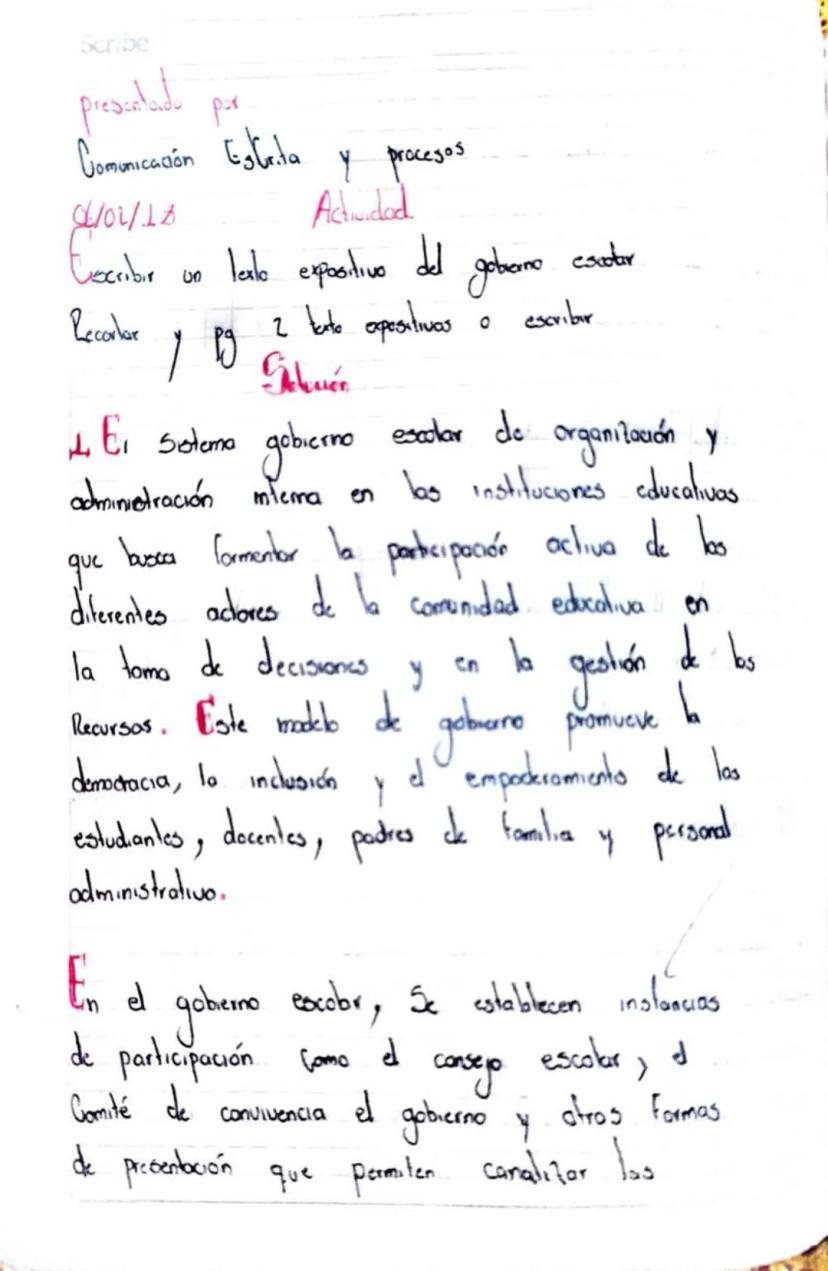 Scribe
presentado por
Comunicación Escrita y procesos
Actividad
Escribir un texto expositivo del gobierno escolar
Recortar y pg 2 texto expositivos o escribir
Solución
1 El sistema gobierno escolar de organización y
administración interna en las instituciones educativas
que busca formentar la participación activa de los
diferentes actores de la comunidad educativa en
la toma de decisiones y en la gestión de los
Recursos. Este modelo de gobierno promueve la
democracia, la inclusión y el empoderamiento de los
estudiantes, docentes, padres de familia y personal
administrativo.
En el gobierno escolar, Se establecen instancias
de participación como el consejo escolar, el
Comité de convivencia el gobierno y otros Formas
de presentación que permiten canalizar las